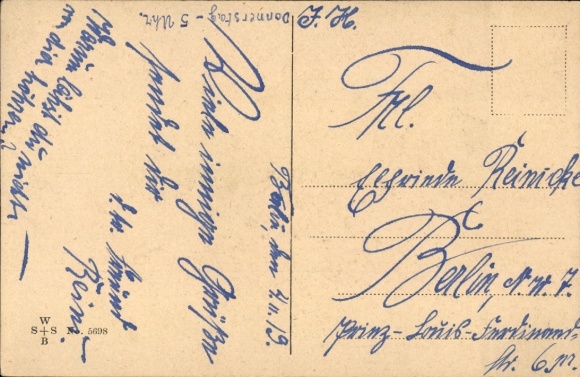 Donnerstag - 5 Uhr.
Berlin, den 7.11.19.
Viele innigen Grüße
sendet dir
Warum läßt du
hören?
J. H.
Frl.
Elfriede Reinicke
Berlin, N.W. 7.
Prinz-Louis-Ferdinand-
Str. 6
W
S+S
B
No. 5698